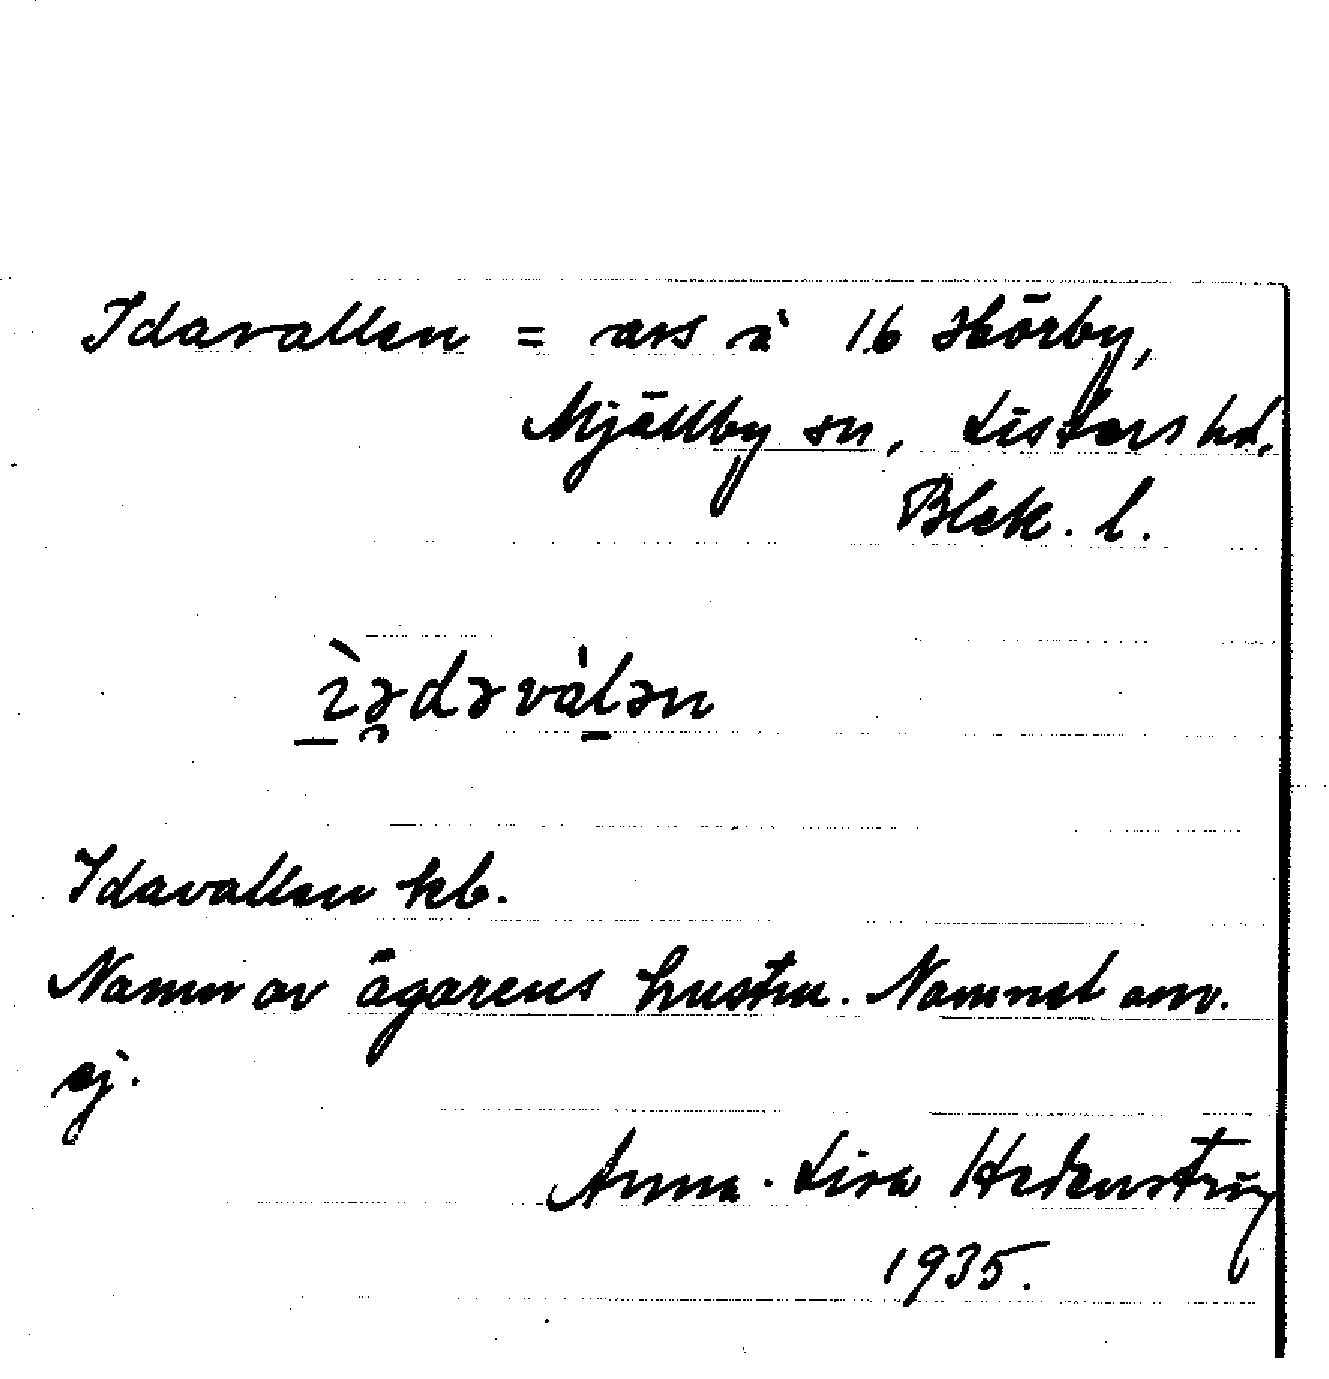 Idavallen = avs å 16 Hörby,
Mjällby sn, Listers hd,
Blek. l.
ìədəvàlən
Idavallen kb.
Namn av ägarens hustru. Namnet anv.
ej.
Anna-Lisa Hedenstrup
1935.